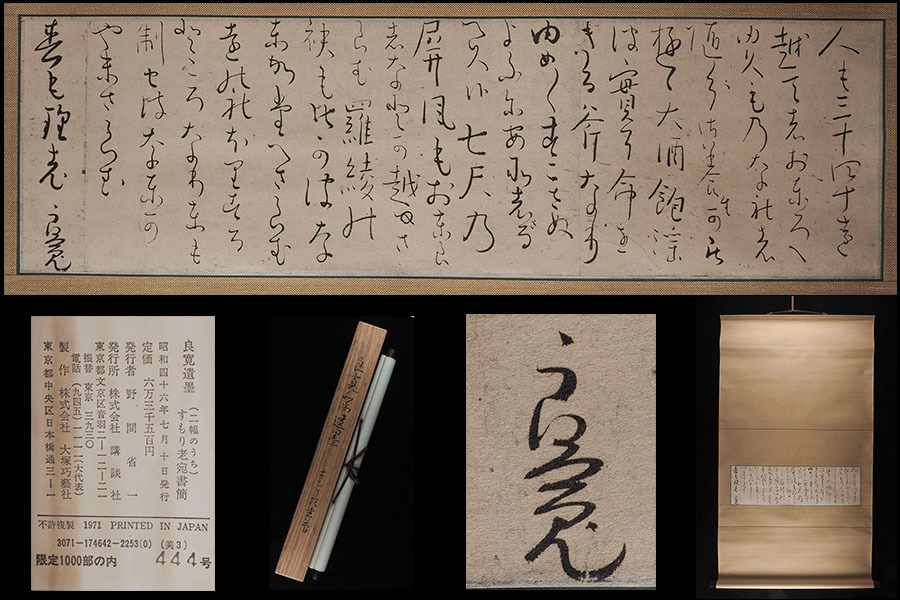 人も三十四十を
越てはおとろへ
ゆくものなれは
随分御養生可被
遊候大酒飽淫
は實に命を
きる斧なり
ゆめ〱すこさぬ
よふにあそはさる
へく候 七尺の
屏風もおとら
はなとか越さ
らむ 羅綾の
袂もひかはな
とかたへさらむ
をのれほりする
ところなりとも
制せはなとか
やまさらむ
すもり老 良寛
良寛遺墨 (二幅のうち)すもり老宛書簡
昭和四十六年七月十日発行
定価 六万三千五百円
発行者 野間省一
発行所 株式会社 講談社
東京都文京区音羽二-一二-二一
振替 東京 三九三〇
電話 (九四五)一一一一(大代表)
製作 株式会社 大塚巧藝社
東京都中央区日本橋通三-一
不許複製 1971 PRINTED IN JAPAN
3071-174642-2253(0) (美3)
限定1000部の内 444号
良寛